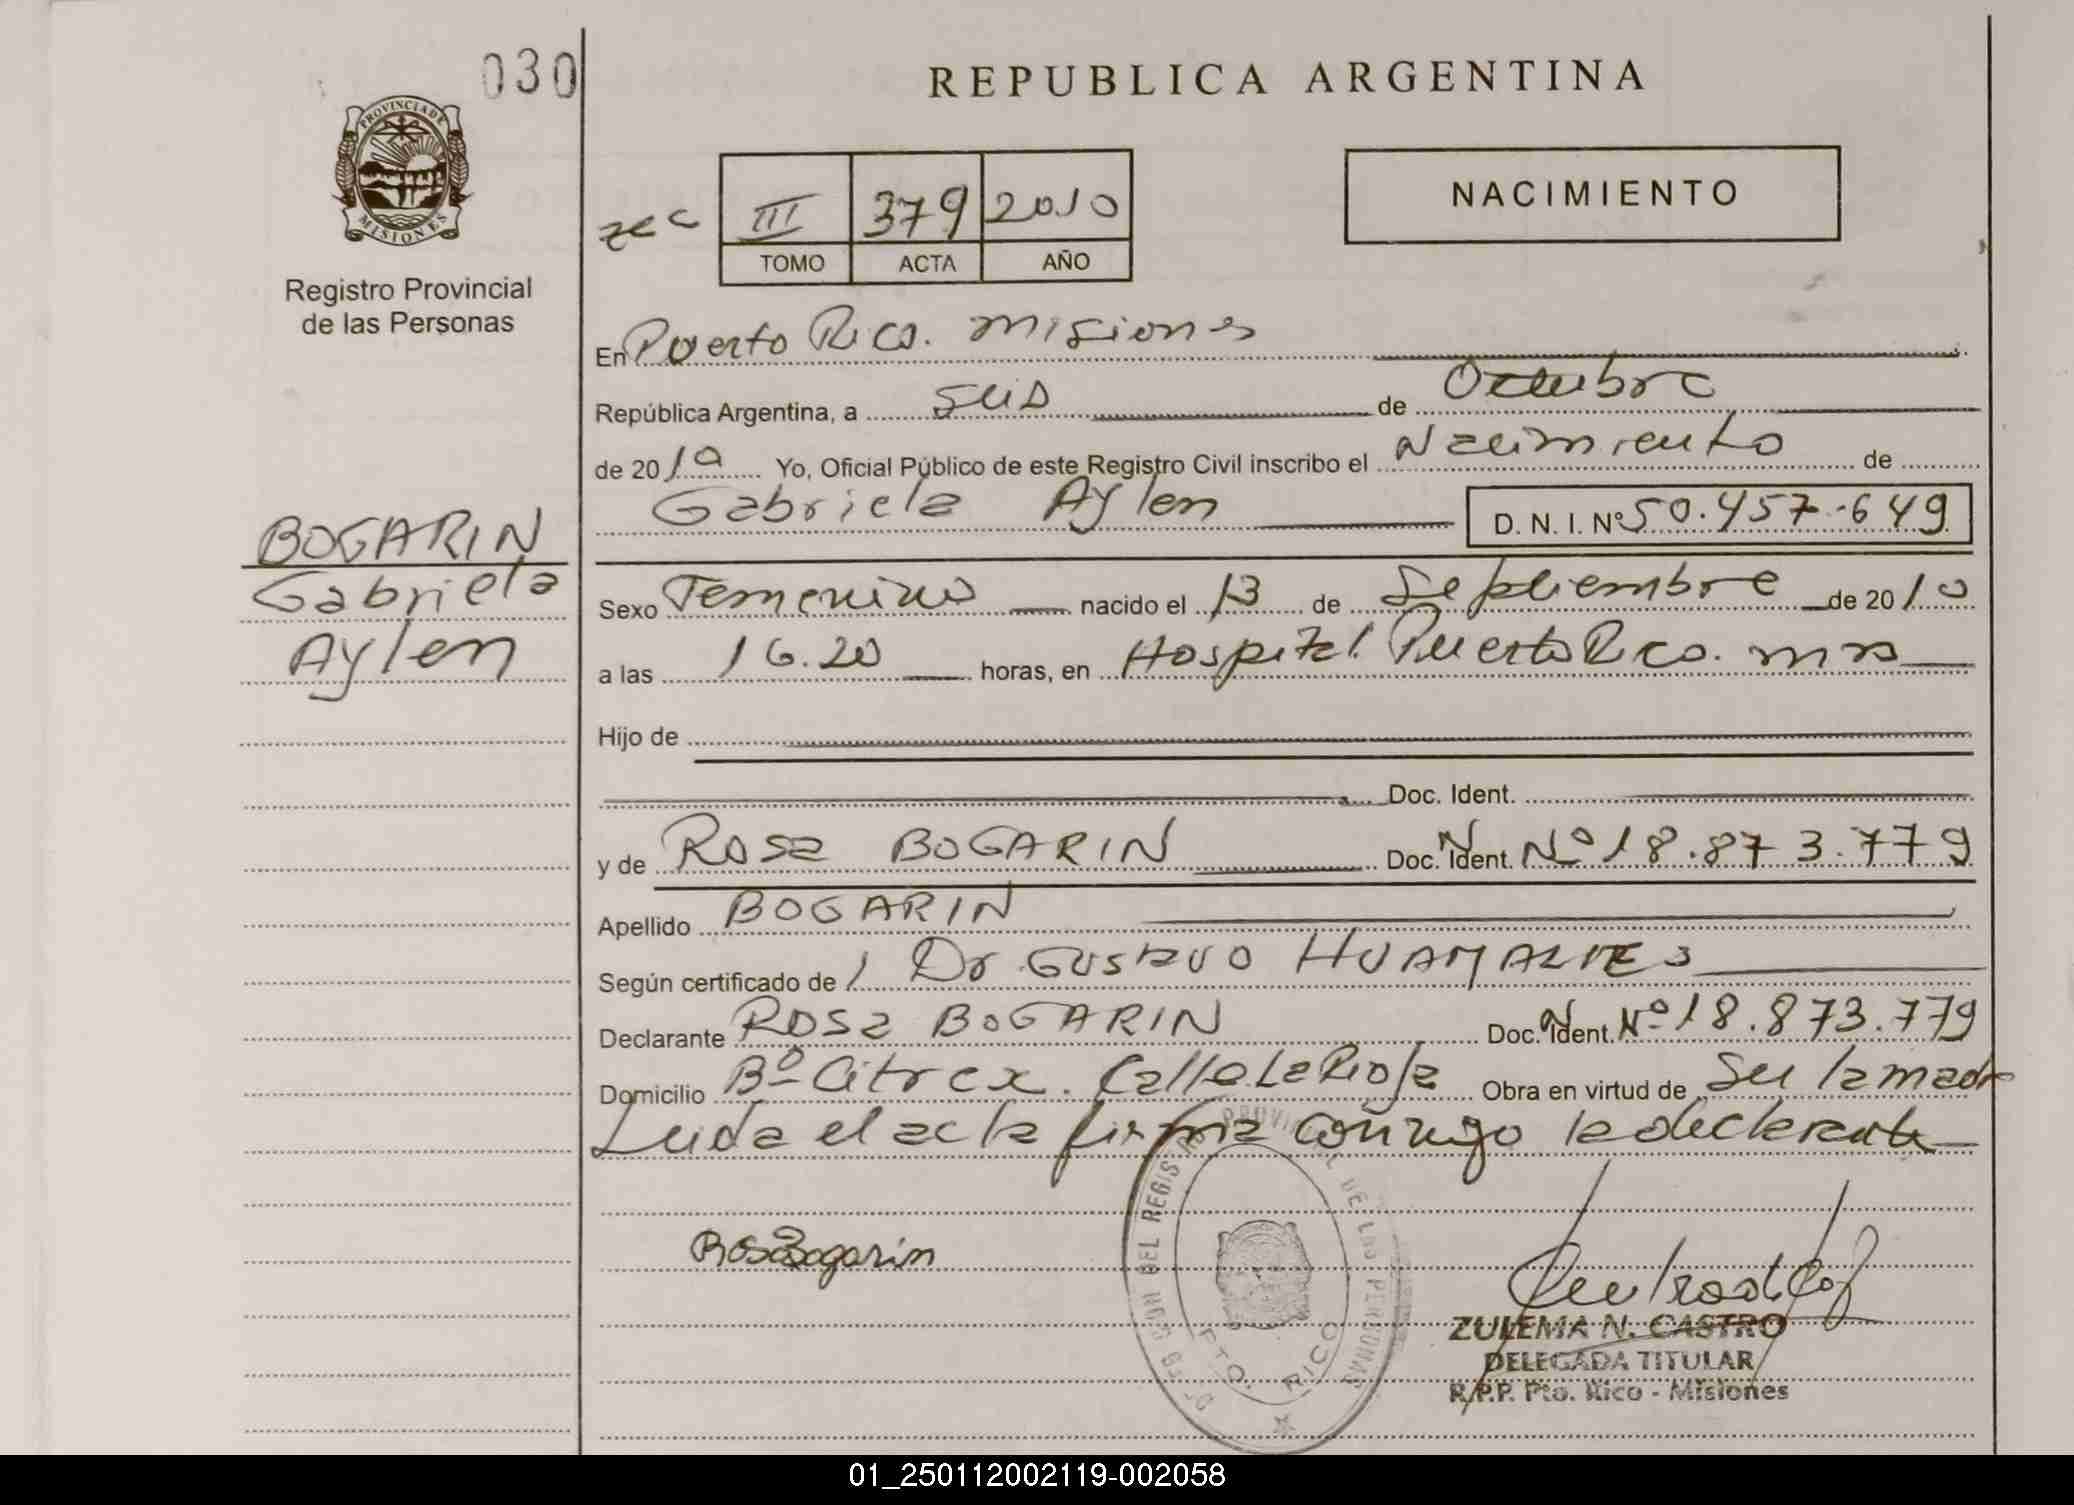 030
REPUBLICA ARGENTINA
PROVINCIA DE MISIONES
Registro Provincial
de las Personas
NACIMIENTO
III 379 2010
TOMO ACTA AÑO
En Puerto Rico. Misiones
República Argentina, a seis de Octubre
de 2010 Yo, Oficial Público de este Registro Civil inscribo el Nacimiento de
Gabriela Aylen D. N. I. Nº 50.457.649
BOGARIN
Gabriela
Aylen
Sexo Femenino nacido el 13 de Septiembre de 2010
a las 16.20 horas, en Hospital Puerto Rico. mns
Hijo de
Doc. Ident.
y de Rosa BOGARIN Doc. Ident. Nº 18.873.779
Apellido BOGARIN
Según certificado de Dr. Gustavo HUAMALIES
Declarante Rosa BOGARIN Doc. Ident. Nº 18.873.779
Domicilio Bº Citrex. Calle La Rioja Obra en virtud de Ser la madre
Leida el acta firma conmigo la declarante
Rosa Bogarin
DEL REGISTRO PROVINCIAL DE LAS PERSONAS
PTO. RICO
ZULEMA N. CASTRO
DELEGADA TITULAR
R.P.P. Pto. Rico - Misiones
01_250112002119-002058